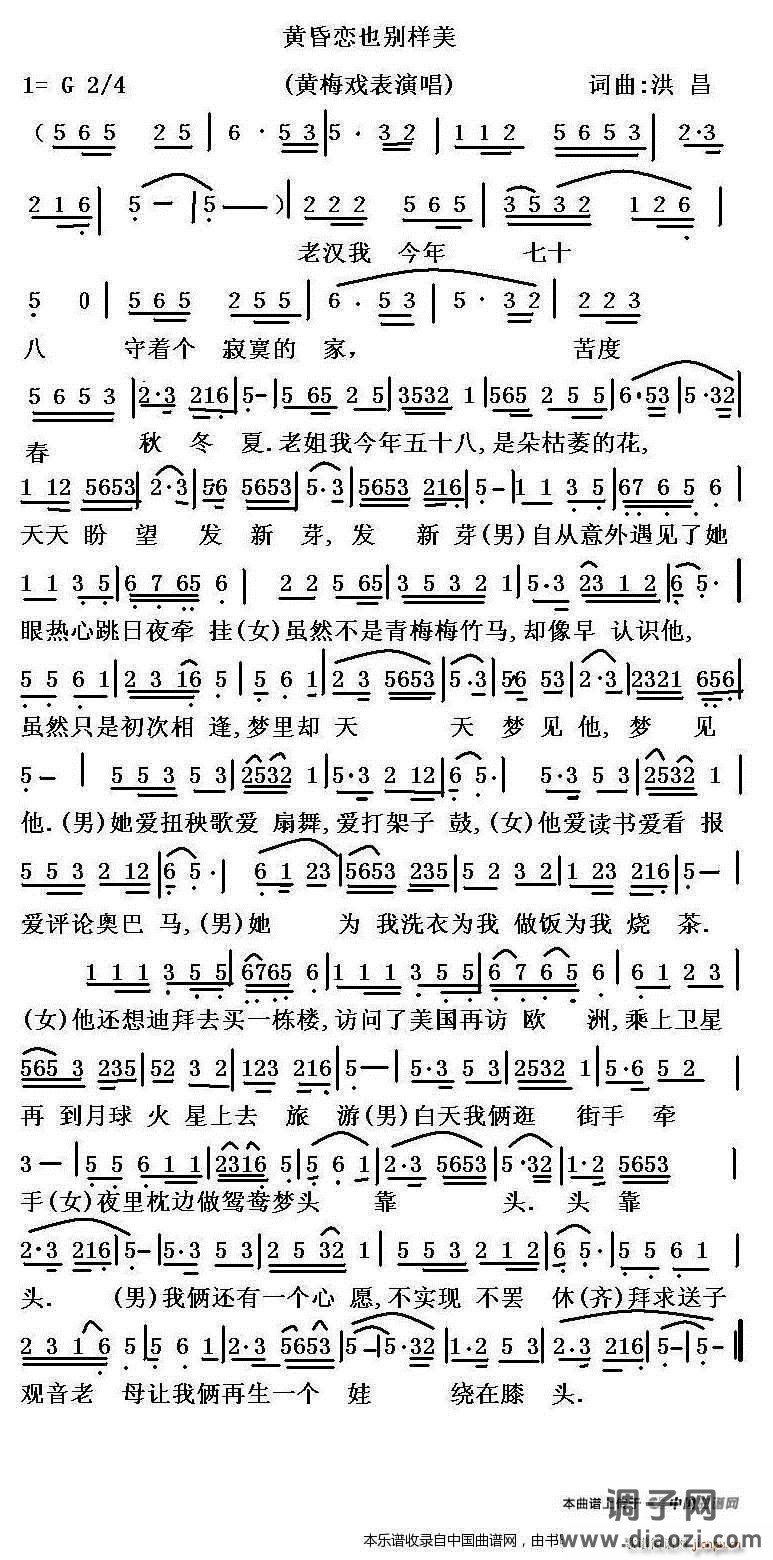 黄昏恋也别样美
1= G 2/4 (黄梅戏表演唱) 词曲:洪 昌
( 5 6 5 2 5 | 6 · 5 3 | 5 · 3 2 | 1 1 2 5 6 5 3 | 2·3
2 1 6 | 5 — | 5 — ) | 2 2 2 5 6 5 | 3 5 3 2 1 2 6 |
老汉我 今年 七十
5 0 | 5 6 5 2 5 5 | 6 . 5 3 | 5 · 3 2 | 2 2 3
八 守着个 寂寞的 家, 苦度
5 6 5 3 | 2·3 216 | 5- | 5 65 2 5 | 3532 1 | 565 2 5 5 | 6·53 | 5·32 |
春 秋 冬 夏.老姐我今年五十八,是朵枯萎的花,
1 12 5653 | 2·3 | 56 5653 | 5·3 | 5653 216 | 5- | 1 1 3 5 | 67 6 5 6 |
天天 盼 望 发 新 芽, 发 新 芽(男)自从意外遇见了她
1 1 3 5 | 6 7 65 6 | 2 2 5 65 | 3 5 3 2 | 5·3 23 1 2 | 6 5· |
眼热心跳日夜牵 挂(女)虽然不是青梅梅竹马,却像早 认识他,
5 5 6 1 | 2 3 16 5 | 5 6 1 | 2 3 5653 | 5·3 | 56 53 | 2·3 | 2321 656 |
虽然只是初次相 逢,梦里却 天 天 梦 见 他, 梦 见
5— | 5 5 3 5 3 | 2532 1 | 5·3 2 12 | 6 5· | 5 3 5 3 | 2532 1 |
他.(男)她爱扭秧歌爱 扇舞,爱打架子 鼓,(女)他爱读书爱看 报
5 5 3 2 12 | 6 5· | 6 1 23 | 5653 235 | 5 2 3 2 | 1 23 216 | 5— |
爱评论奥巴 马,(男)她 为 我洗衣为我 做饭为我 烧 茶.
1 1 1 3 5 5 | 6765 6 | 1 1 1 3 5 5 | 6 7 6 5 6 | 6 1 2 3 |
(女)他还想迪拜去买一栋楼,访问了美国再访 欧 洲,乘上卫星
565 3 235 | 52 3 2 | 123 216 | 5— | 5·3 5 3 | 2532 1 | 5·6 5 3 |
再 到月球 火 星上去 旅 游(男)白天我俩逛 街手 牵
3— | 5 5 6 1 1 | 2316 5 | 5 6 1 | 2·3 5653 | 5·32 | 1·2 5653 |
手(女)夜里枕边做鸳鸯梦头 靠 头. 头 靠
2·3 216 | 5- | 5·3 5 3 | 2 5 32 1 | 5 5 3 2 1 2 | 6 5· | 5 5 6 1 |
头. (男)我俩还有一个心 愿,不实现 不罢 休(齐)拜求送子
2 3 1 6 5 | 5 6 1 | 2·3 5653 | 5—5·32 | 1·2 5 3 | 2·3 216 | 5—5— ‖
观音老 母让我俩再生一个 娃 绕在膝 头.
本曲谱上传于
调子网
本乐谱收录自中国曲谱网,由书
www.diaozi.com